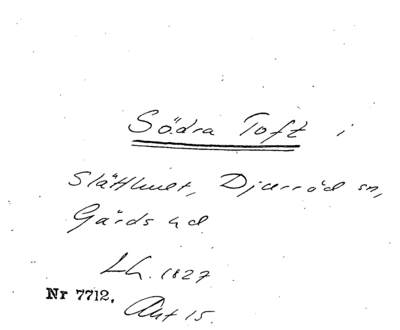 Södra Toft i
Slätthult, Djurröd sn,
Gärds hd
Lh. 1827
Nr 7712.
Akt 15.